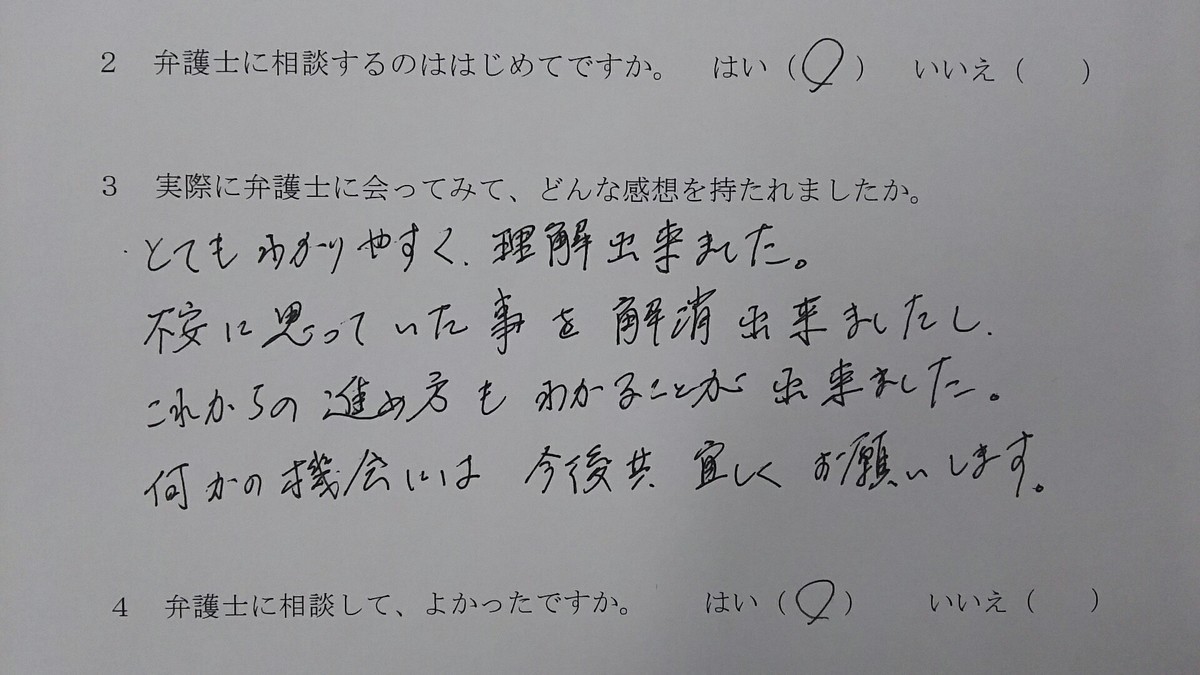 2 弁護士に相談するのははじめてですか。 はい(○) いいえ( )
3 実際に弁護士に会ってみて、どんな感想を持たれましたか。
とてもわかりやすく、理解出来ました。
不安に思っていた事を解消出来ましたし、
これからの進め方もわかることが出来ました。
何かの機会には今後共宜しくお願いします。
4 弁護士に相談して、よかったですか。 はい(○) いいえ( )